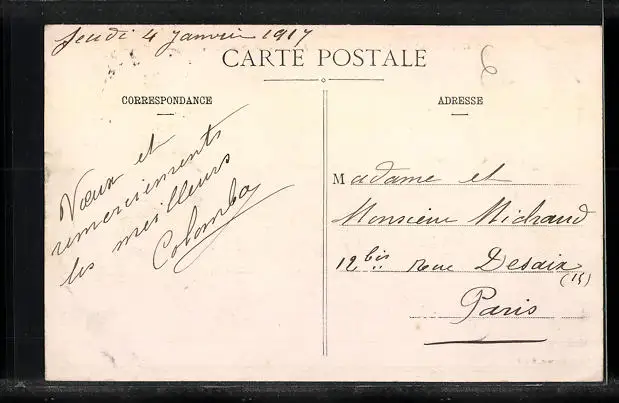 Jeudi 4 Janvier 1917
CARTE POSTALE
6
CORRESPONDANCE
Vœux et
remerciements
les meilleurs
Colomba
ADRESSE
Madame et
Monsieur Michaud
12 bis rue Desaix
(15)
Paris